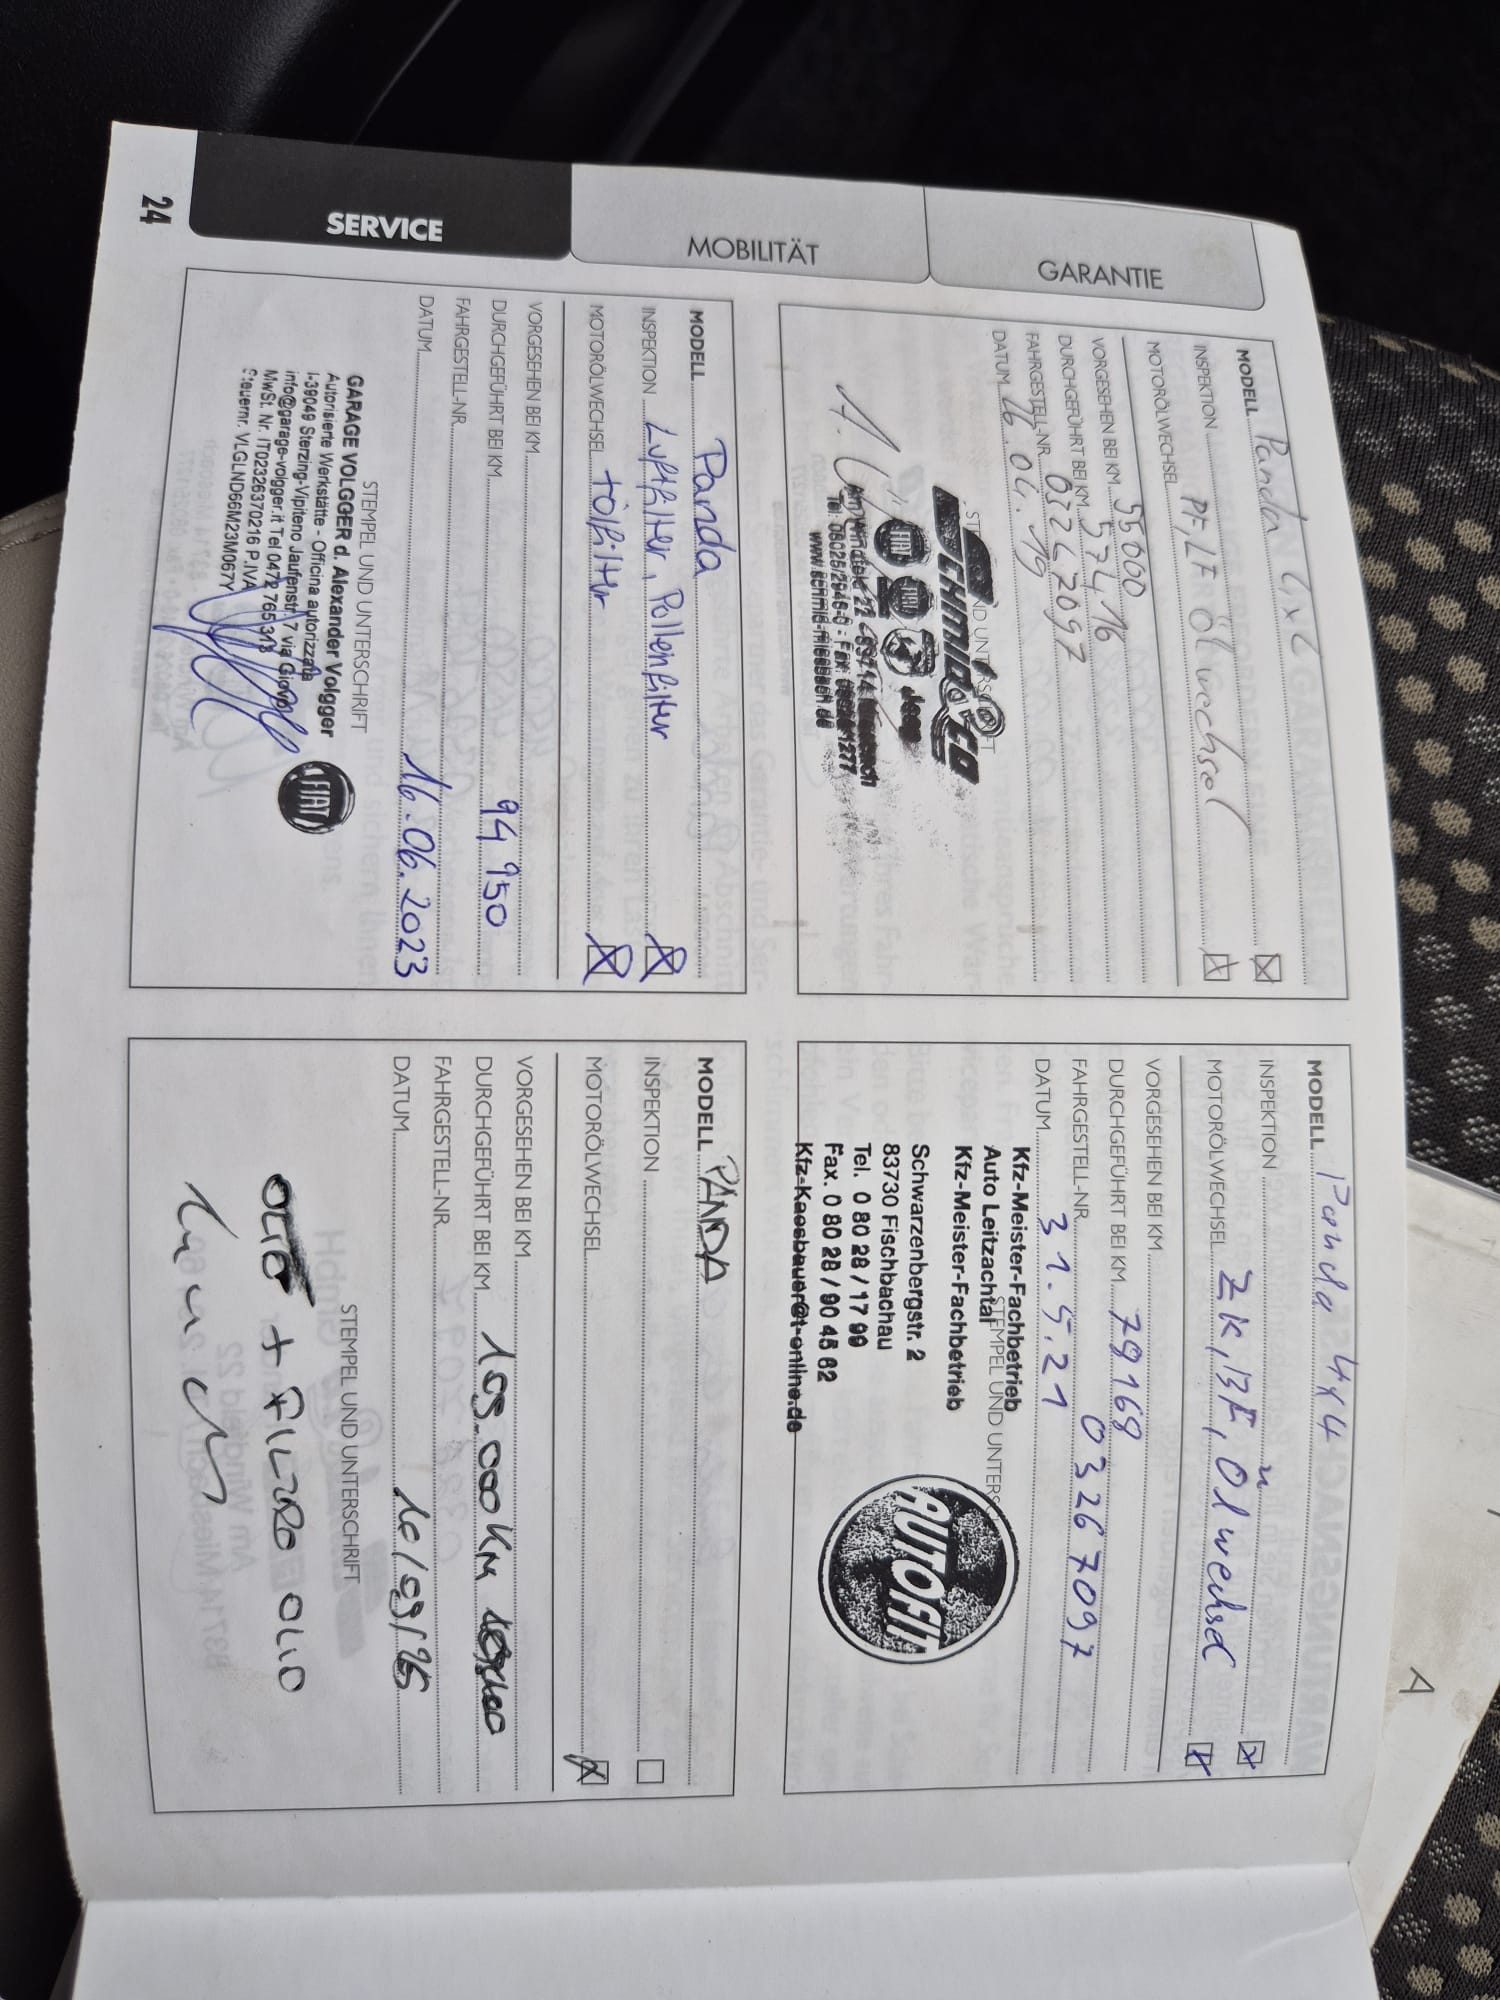 GARANTIE
MOBILITÄT
SERVICE
24
MODELL Panda 4x4
INSPEKTION PF, LF
MOTORÖLWECHSEL Ölwechsel
VORGESEHEN BEI KM 55000
DURCHGEFÜHRT BEI KM 57416
FAHRGESTELL-NR. 03267097
DATUM 16.04.19
SCHMID & CO
FIAT
Jeep
www.schmid-miesbach.de
MODELL Panda 4x4
INSPEKTION
MOTORÖLWECHSEL ZK, BF, Ölwechsel
VORGESEHEN BEI KM
DURCHGEFÜHRT BEI KM 79168
FAHRGESTELL-NR. 03267097
DATUM 31.5.21
STEMPEL UND UNTERS
Kfz-Meister-Fachbetrieb
Auto Leitzachtal
Kfz-Meister-Fachbetrieb
Schwarzenbergstr. 2
83730 Fischbachau
Tel. 0 80 28 / 17 99
Fax. 0 80 28 / 90 45 62
Kfz-Kaesbauer@t-online.de
AUTOFIT
MODELL Panda
INSPEKTION Luftfilter, Pollenfilter
MOTORÖLWECHSEL + Ölfilter
VORGESEHEN BEI KM
DURCHGEFÜHRT BEI KM 94 950
FAHRGESTELL-NR.
DATUM 16.06.2023
STEMPEL UND UNTERSCHRIFT
GARAGE VOLGGER d. Alexander Volgger
Autorisierte Werkstätte - Officina autorizzata
I-39049 Sterzing-Vipiteno Jaufenstr. 7 via Giovo
info@garage-volgger.it Tel 0472 765 313
MwSt. Nr. IT02326370216 P.IVA
Steuernr. VLGLND66M23M067Y
FIAT
MODELL PANDA
INSPEKTION
MOTORÖLWECHSEL
VORGESEHEN BEI KM
DURCHGEFÜHRT BEI KM 105.000 KM
FAHRGESTELL-NR.
DATUM
STEMPEL UND UNTERSCHRIFT
OLIO + FILZRO OLIO
A